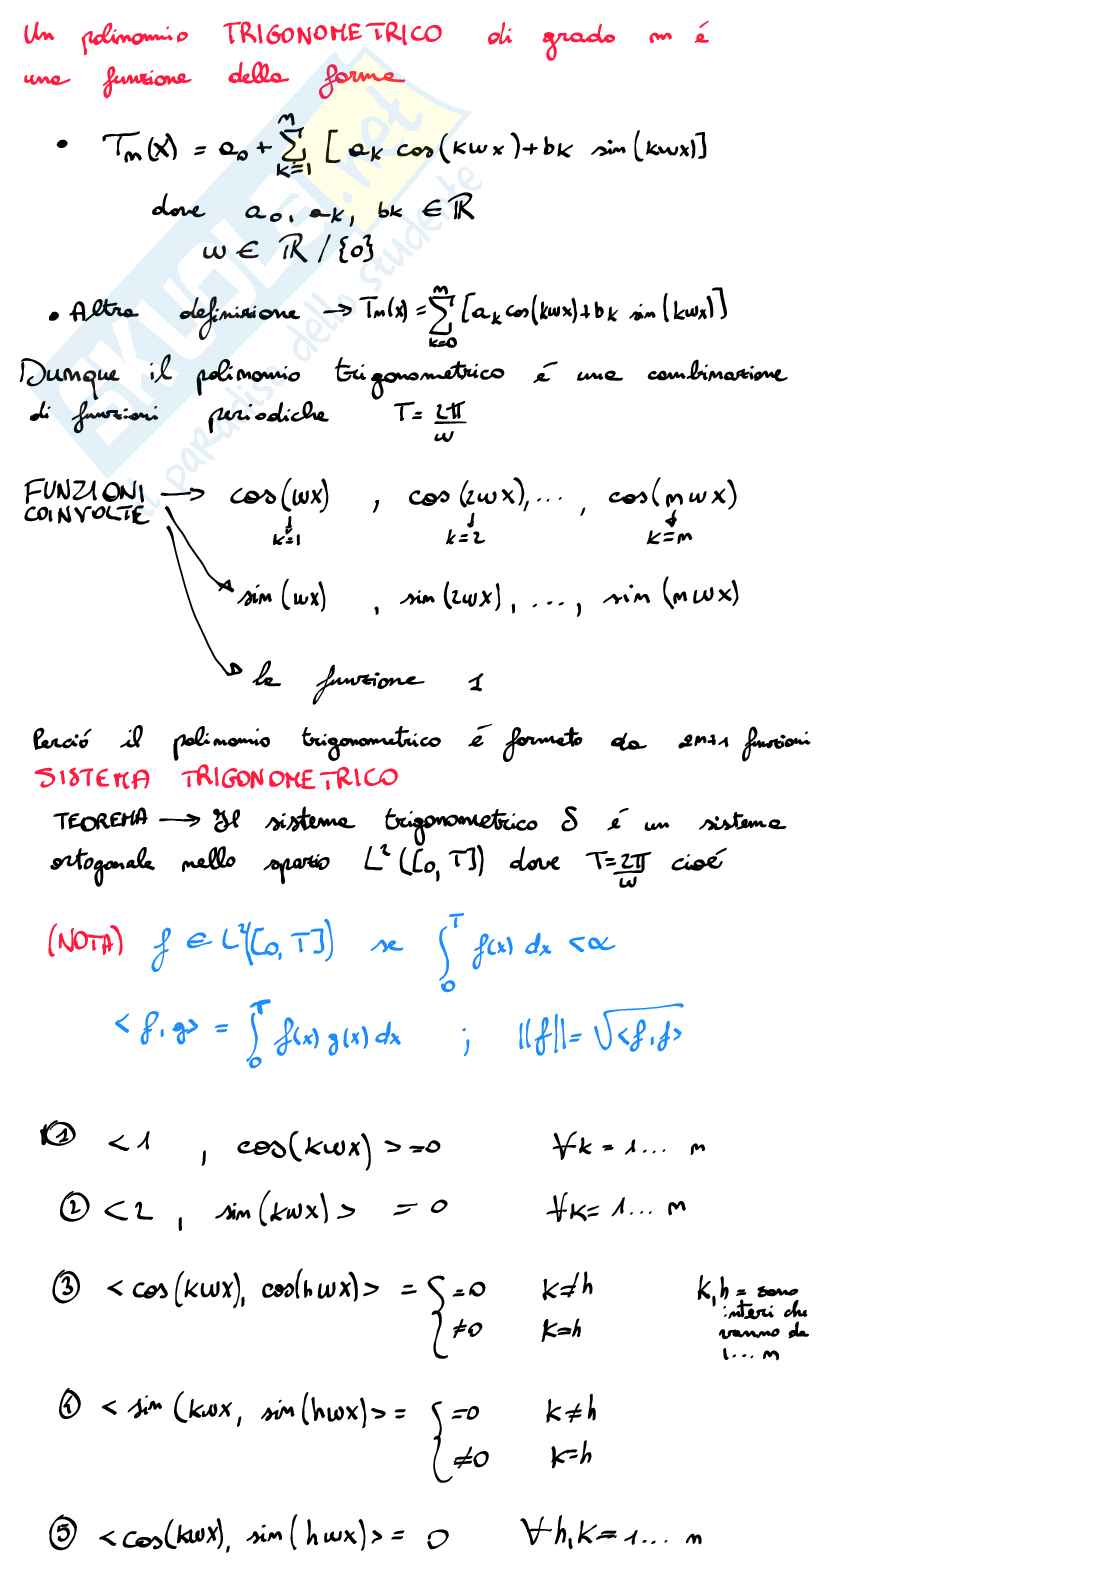 Un polinomio TRIGONOMETRICO di grado m é
una funzione della forma
• Tm(x) = a₀ + ∑_{k=1}^{m} [ak cos(kωx)+bk sin(kωx)]
dove a₀, ak, bk ∈ ℝ
ω ∈ ℝ / {0}
• Altra definizione → Tm(x) = ∑_{k=0}^{m} [ak cos(kωx)+bk sin(kωx)]
Dunque il polinomio trigonometrico é una combinazione
di funzioni periodiche T = 2π/ω
FUNZIONI → cos(ωx) , cos(2ωx), ... , cos(mωx)
COINVOLTE
k=1 k=2 k=m
sin(ωx) , sin(2ωx), ..., sin(mωx)
la funzione 1
Perció il polinomio trigonometrico é formato da 2m+1 funzioni
SISTEMA TRIGONOMETRICO
TEOREMA → Il sistema trigonometrico S é un sistema
ortogonale nello spazio L²([0,T]) dove T=2π/ω cioé
(NOTA) f ∈ L²([0,T]) se ∫₀ᵀ f(x) dx <∝
<f,g> = ∫₀ᵀ f(x) g(x) dx ; ||f|| = √<f,f>
① <1 , cos(kωx)> =0 ∀k = 1... m
② <2 , sin(kωx)> = 0 ∀k= 1... m
③ <cos(kωx), cos(hωx)> = { =0 k≠h
≠0 k=h
k,h = sono
interi che
vanno da
1... m
④ <sin(kωx, sin(hωx)> = { =0 k≠h
≠0 k=h
⑤ <cos(kωx), sin(hωx)> = 0 ∀h,k=1... m
SKUOLA.net
il paradiso dello studente